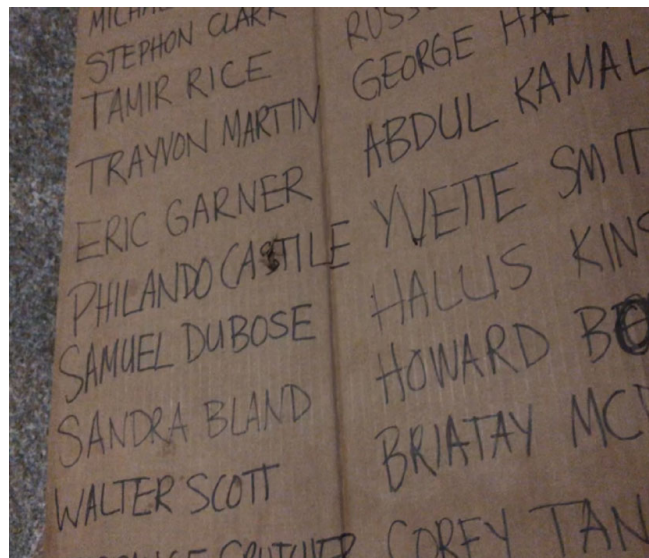 STEPHON CLARK
TAMIR RICE
TRAYVON MARTIN
ERIC GARNER
PHILANDO CASTILE
SAMUEL DUBOSE
SANDRA BLAND
WALTER SCOTT
CRUTCHER
GEORGE
ABDUL KAMAL
YVETTE SMIT
HALLIS KINS
HOWARD
BRIATAY MC
COREY TAN